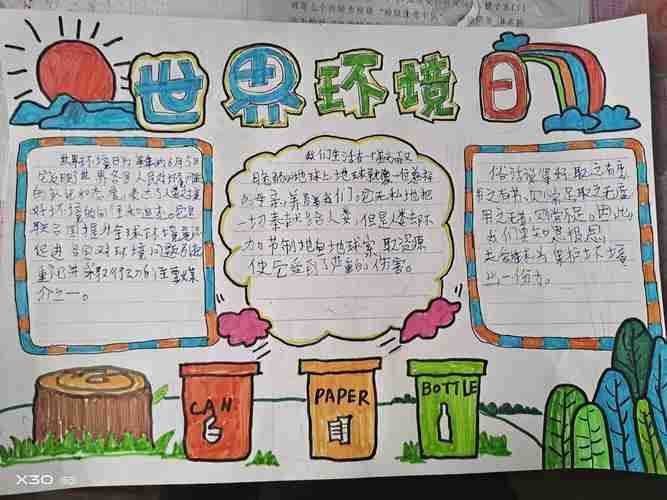 世界环境日
世界环境日为每年的6月5日
它反映世界各国人民对环境问题
的认识和态度,表达了人类对美
好环境的向往和追求。它是
联合国提升全球环境意识
促进各国对环境问题的
重视并采取行动的主要媒
介之一。
我们生活在一个美丽又
的地球上,地球就像一位慈祥
的母亲,养育着我们,它无私地把
一切奉献给人类,但是人类却不
加节制地向地球索取资源
使它受到了严重的伤害。
俗话说得好:取之有度
用之有节,则常足,取之无度
用之无节,则常不足。因此
我们要
去 为保护大环境
出一份力。
CAN
PAPER
BOTTLE
X30